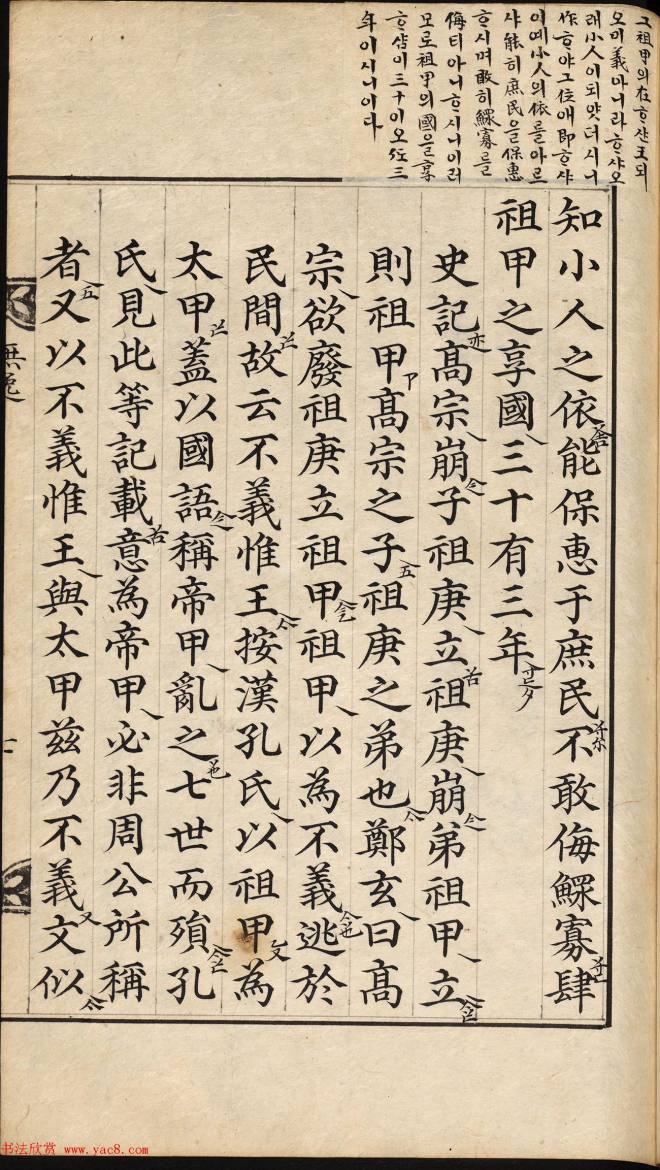 그祖甲의在ᄒᆞ샨王되
오미義아니라ᄒᆞ샤오
래小人이되얏더시니
作ᄒᆞ야그位애即ᄒᆞ샤
이예小人의依를아르
샤能히庶民을保惠
ᄒᆞ시며敢히鰥寡를
侮티아니ᄒᆞ시니이러
모로祖甲의國을享
ᄒᆞ샴이三十이오三
年이시니이다
知小人之依能保惠于庶民不敢侮鰥寡肆
祖甲之享國三十有三年
史記髙宗崩子祖庚立祖庚崩弟祖甲立
則祖甲髙宗之子祖庚之弟也鄭玄曰髙
宗欲廢祖庚立祖甲祖甲以為不義逃於
民間故云不義惟王按漢孔氏以祖甲為
太甲蓋以國語稱帝甲亂之七世而殞孔
氏見此等記載意為帝甲必非周公所稱
者又以不義惟王與太甲茲乃不義文似
無逸
七
书法欣赏 www.yac8.com